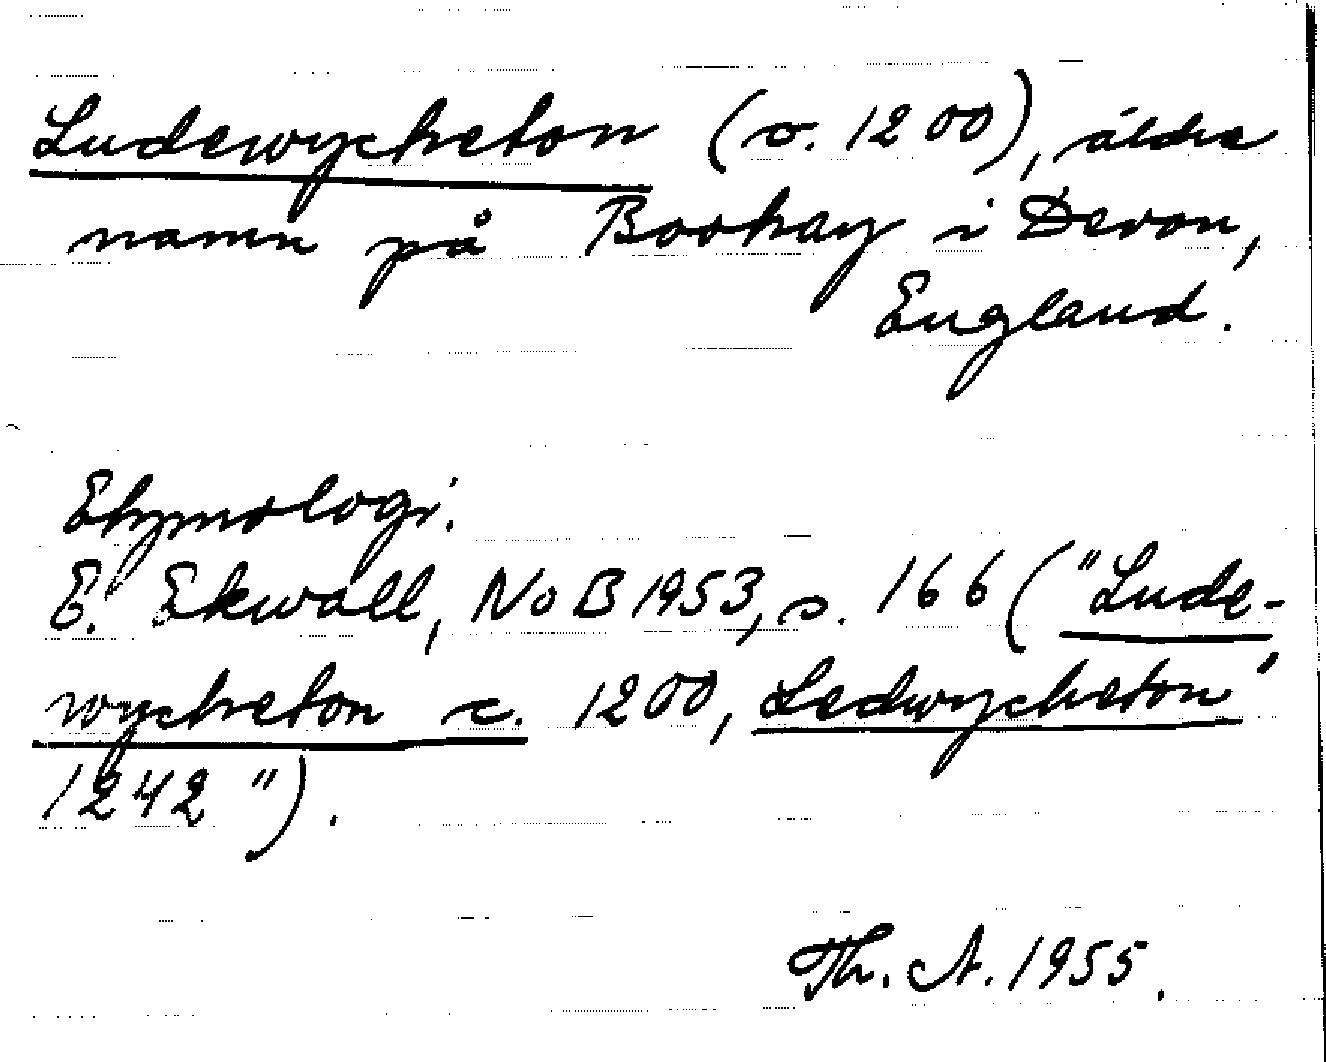 Ludewycheton (o. 1200), äldre
namn på Bookay i Devon,
England.
Etymologi.
E. Ekwall, NoB 1953, s. 166 ("Lude-
wycheton c. 1200, Ledwycheton
1242").
Th. A. 1955.